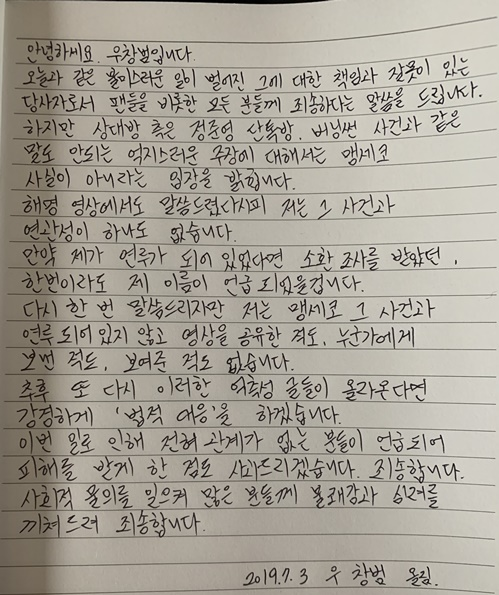 안녕하세요. 우창범입니다.
오늘과 같은 불미스러운 일이 벌어진 그에 대한 책임과 잘못이 있는
당사자로서 팬들을 비롯한 모든 분들께 죄송하다는 말씀을 드립니다.
하지만 상대방 측은 정준영 단톡방, 버닝썬 사건과 같은
말도 안되는 억지스러운 주장에 대해서는 맹세코
사실이 아니라는 입장을 밝힙니다.
해명 영상에서도 말씀드렸다시피 저는 그 사건과
연관성이 하나도 없습니다.
만약 제가 연루가 되어 있었다면 소환 조사를 받았던,
한번이라도 제 이름이 언급 되었을겁니다.
다시 한 번 말씀드리지만 저는 맹세코 그 사건과
연루 되어있지 않고 영상을 공유한 적도, 누군가에게
보낸 적도, 보여준 적도 없습니다.
추후 또 다시 이러한 억측성 글들이 올라온다면
강경하게 '법적 대응'을 하겠습니다.
이번 일로 인해 전혀 관계가 없는 분들이 언급되어
피해를 받게 한 점도 사과드리겠습니다. 죄송합니다.
사회적 물의를 일으켜 많은 분들께 불쾌감과 심려를
끼쳐드려 죄송합니다.
2019.7.3 우 창범 올림.